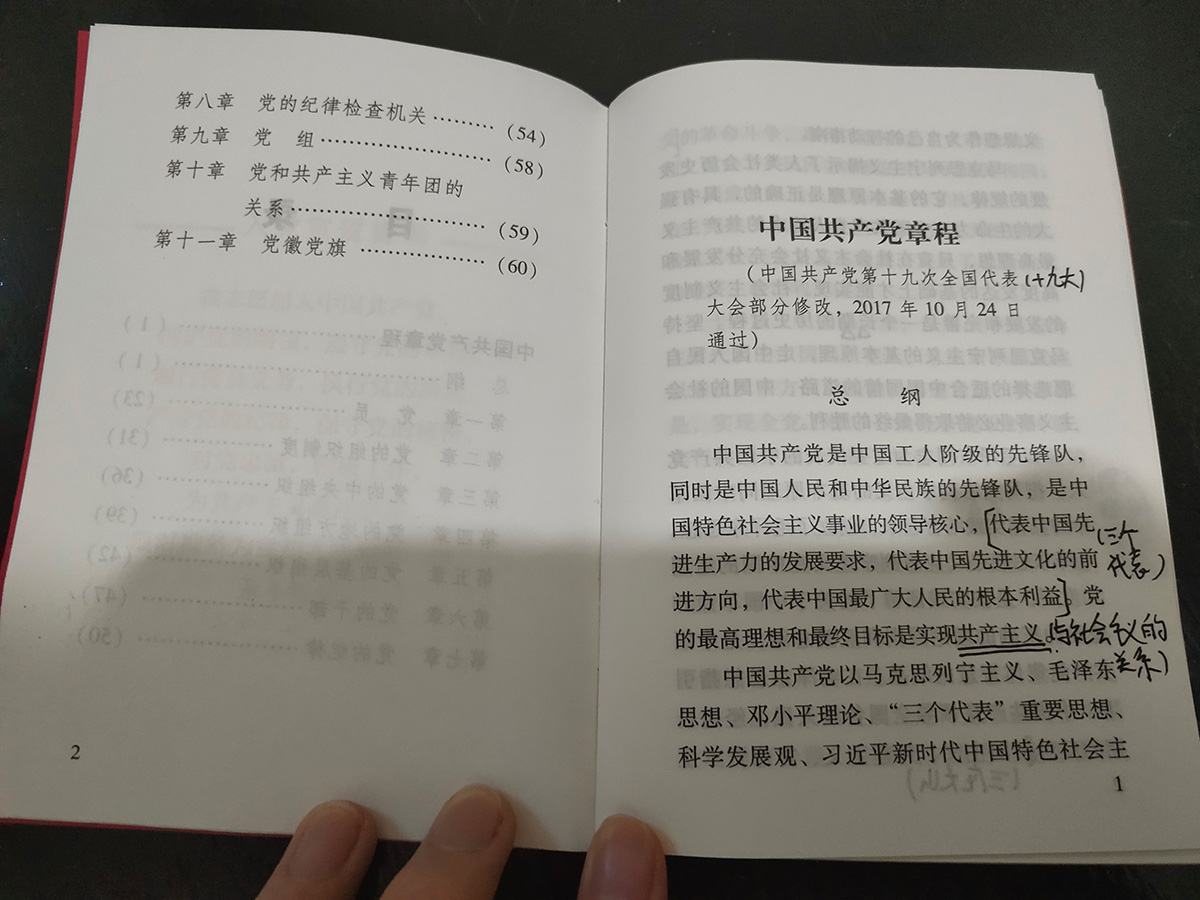 第八章　党的纪律检查机关………（54）
第九章　党　组………………（58）
第十章　党和共产主义青年团的
关系……………………（59）
第十一章　党徽党旗………………（60）
2
中国共产党章程
（中国共产党第十九次全国代表
（十九大）
大会部分修改，2017 年 10 月 24 日
通过）
总　纲
中国共产党是中国工人阶级的先锋队，
同时是中国人民和中华民族的先锋队，是中
国特色社会主义事业的领导核心，[代表中国先
进生产力的发展要求，代表中国先进文化的前
进方向，代表中国最广大人民的根本利益]。党
（三个
代表）
的最高理想和最终目标是实现共产主义。
与社会主义的
关系）
中国共产党以马克思列宁主义、毛泽东
思想、邓小平理论、“三个代表”重要思想、
科学发展观、习近平新时代中国特色社会主
1